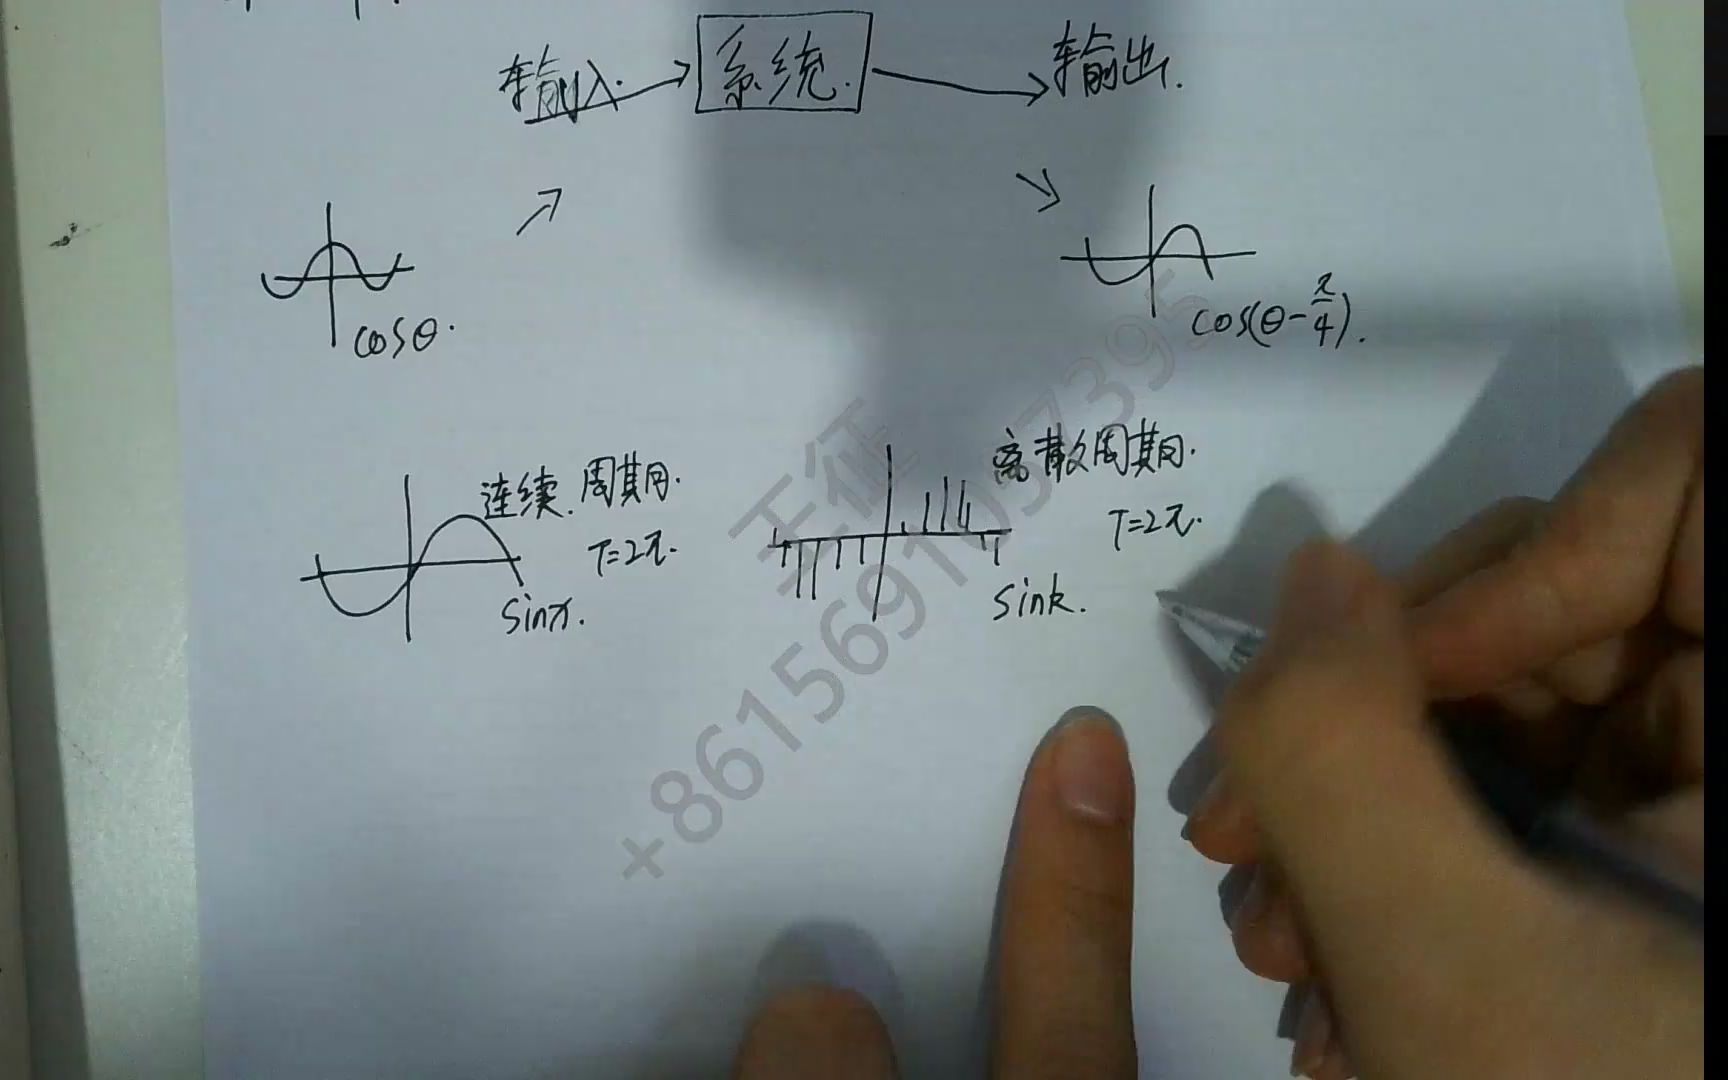 输入. 系统. 输出.
cosθ.
cos(θ-π/4).
连续.周期.
T=2π.
sinx.
离散周期.
T=2π.
sink.
王征
+8615691037395